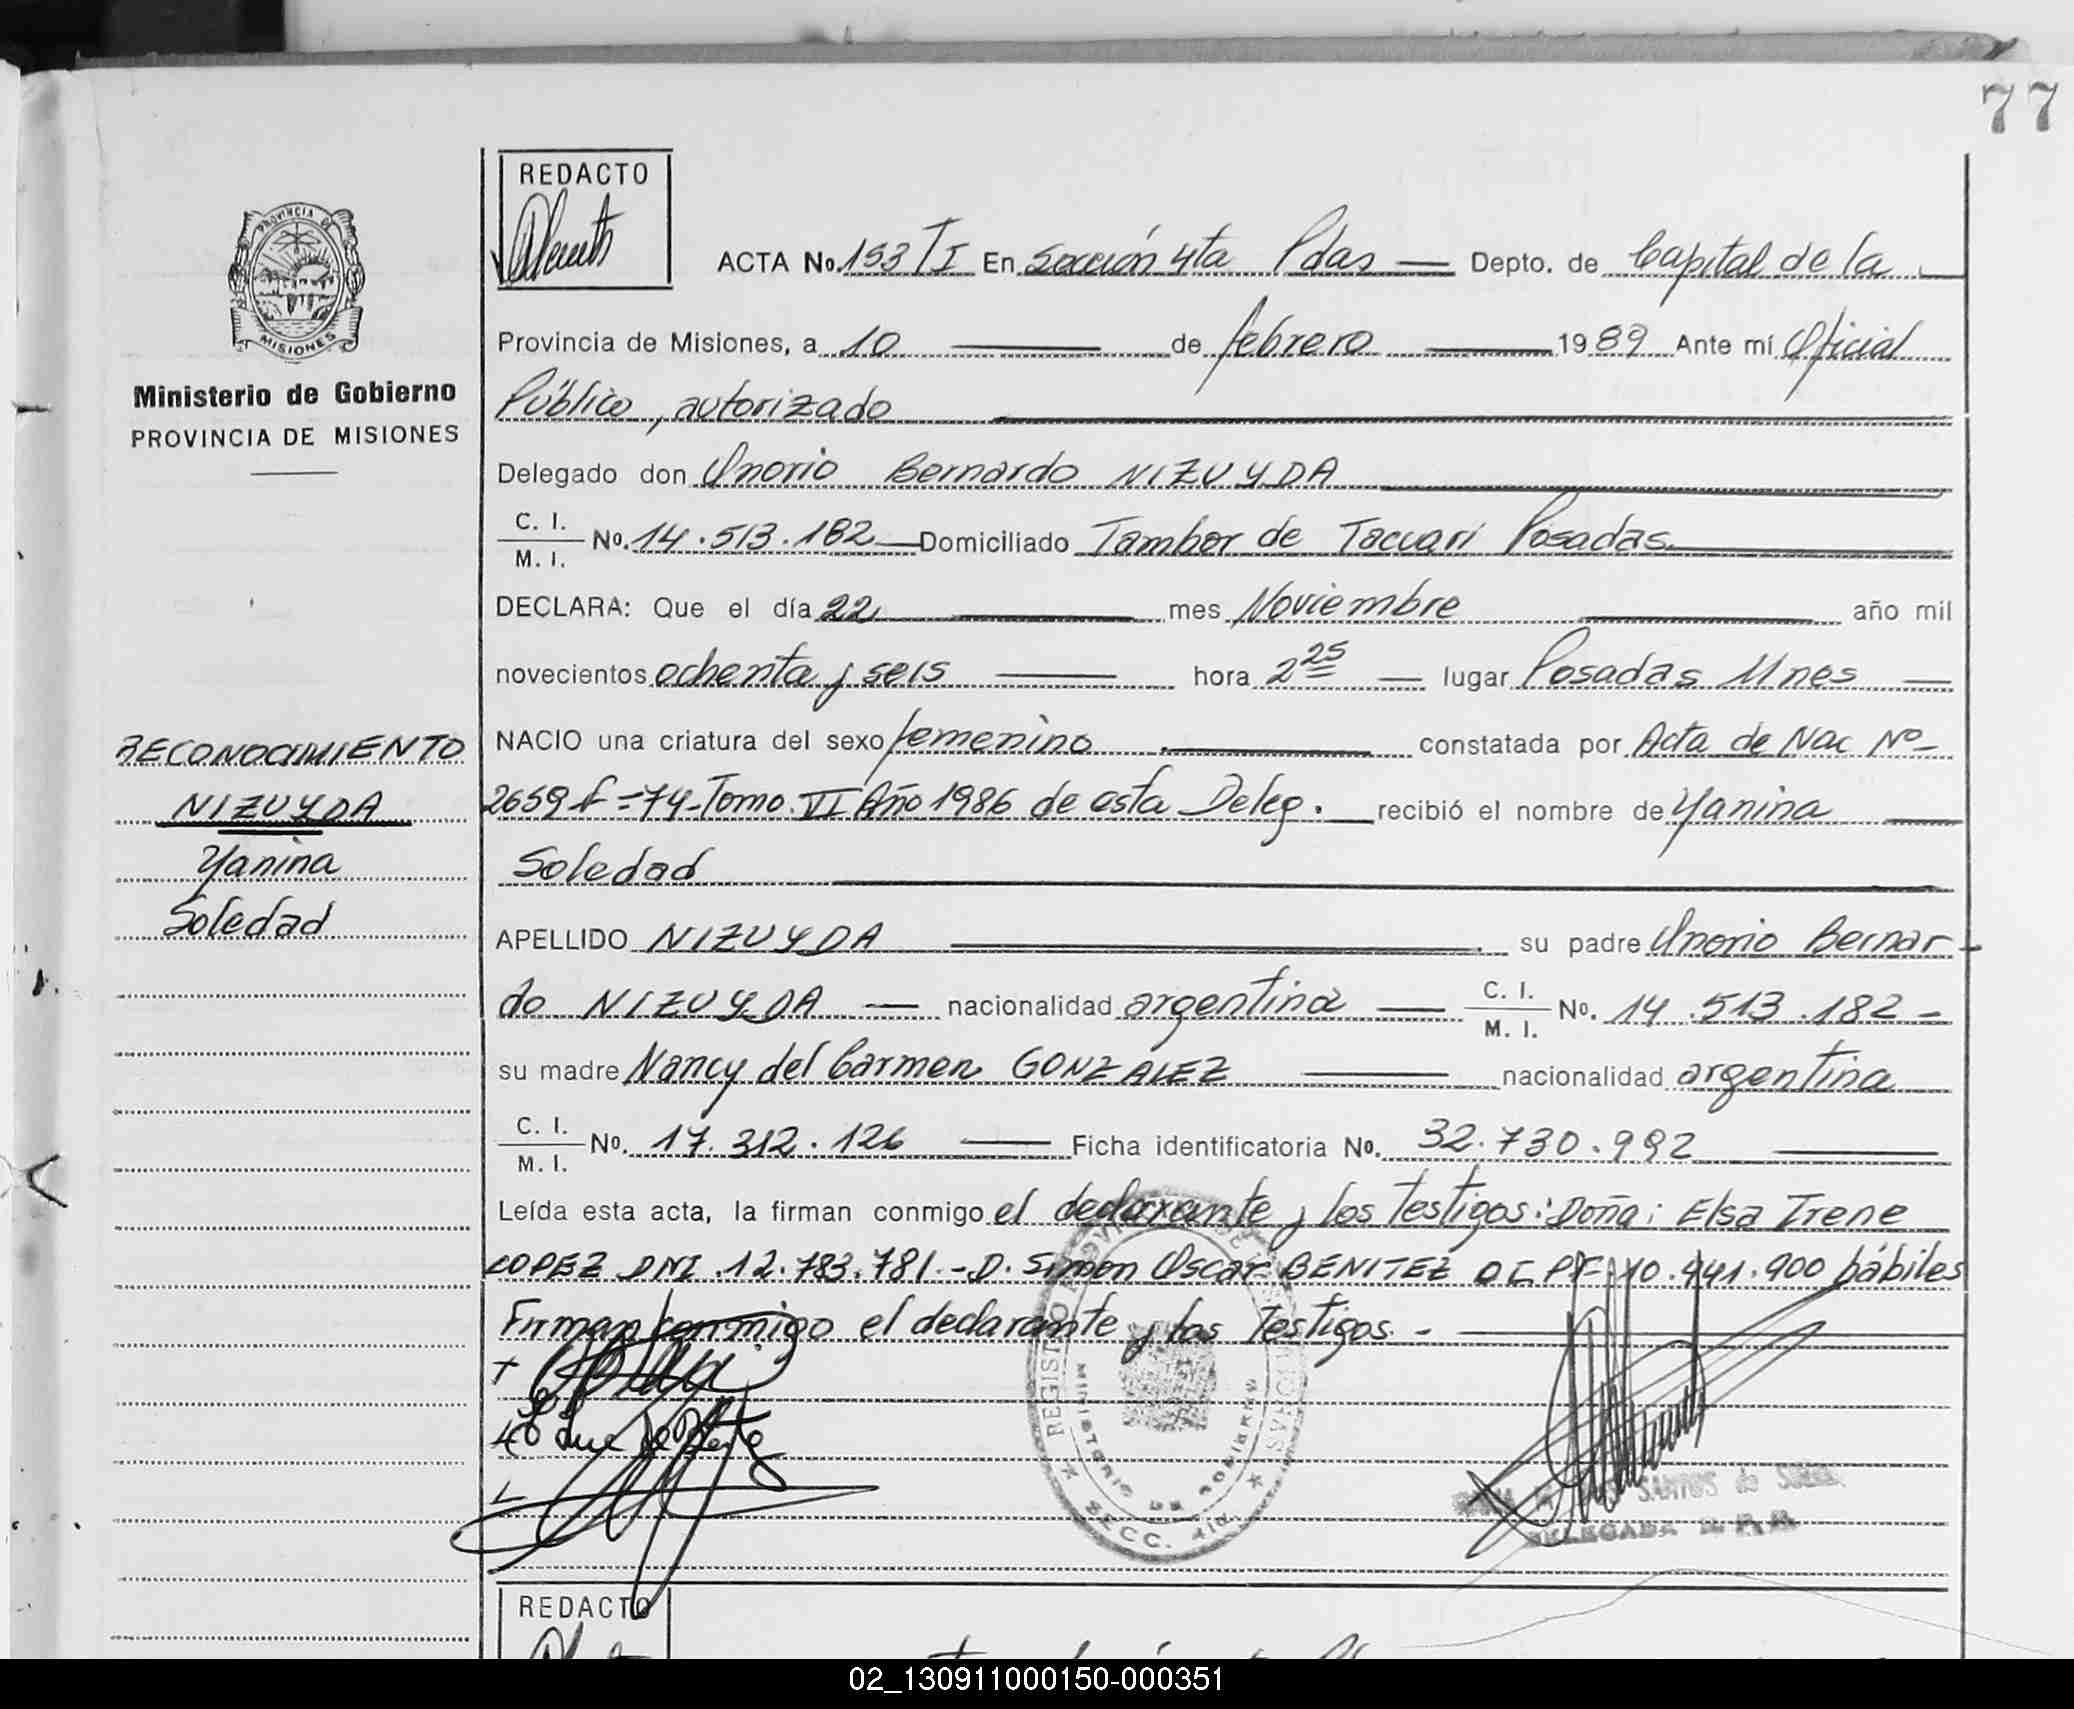 77
REDACTO
PROVINCIA DE
MISIONES
Ministerio de Gobierno
PROVINCIA DE MISIONES
ACTA No. 153 TI En Sección 4ta Pdas — Depto. de Capital de la
Provincia de Misiones, a 10 — de febrero — 1989 Ante mí Oficial
Público, autorizado
Delegado don Onorio Bernardo NIZUYDA
C. I.
M. I. No. 14.513.182 — Domiciliado Tambor de Tacuarí Posadas
DECLARA: Que el día 22 — mes Noviembre — año mil
novecientos ochenta y seis — hora 2 25 — lugar Posadas Mnes —
NACIO una criatura del sexo femenino — constatada por Acta de Nac Nº
2659 f=74-Tomo VI Año 1986 de esta Deleg. — recibió el nombre de Yanina —
Soledad
APELLIDO NIZUYDA — su padre Onorio Bernar-
do NIZUYDA — nacionalidad argentina — C. I.
M. I. No. 14.513.182 -
su madre Nancy del Carmen GONZALEZ — nacionalidad argentina
C. I.
M. I. No. 17.312.126 — Ficha identificatoria No. 32.730.992 —
Leída esta acta, la firman conmigo el declarante y los testigos: Doña: Elsa Irene
LOPEZ DNI 12.783.781.- D. Simon Oscar BENITEZ 10.441.900 hábiles
Firman conmigo el declarante y los testigos. -
RECONOCIMIENTO
NIZUYDA
Yanina
Soledad
REGISTRO
MINISTERIO DE GOBIERNO
SECC. 4ta.
SANTOS de
DELEGADA
REDACTO
02_130911000150-000351